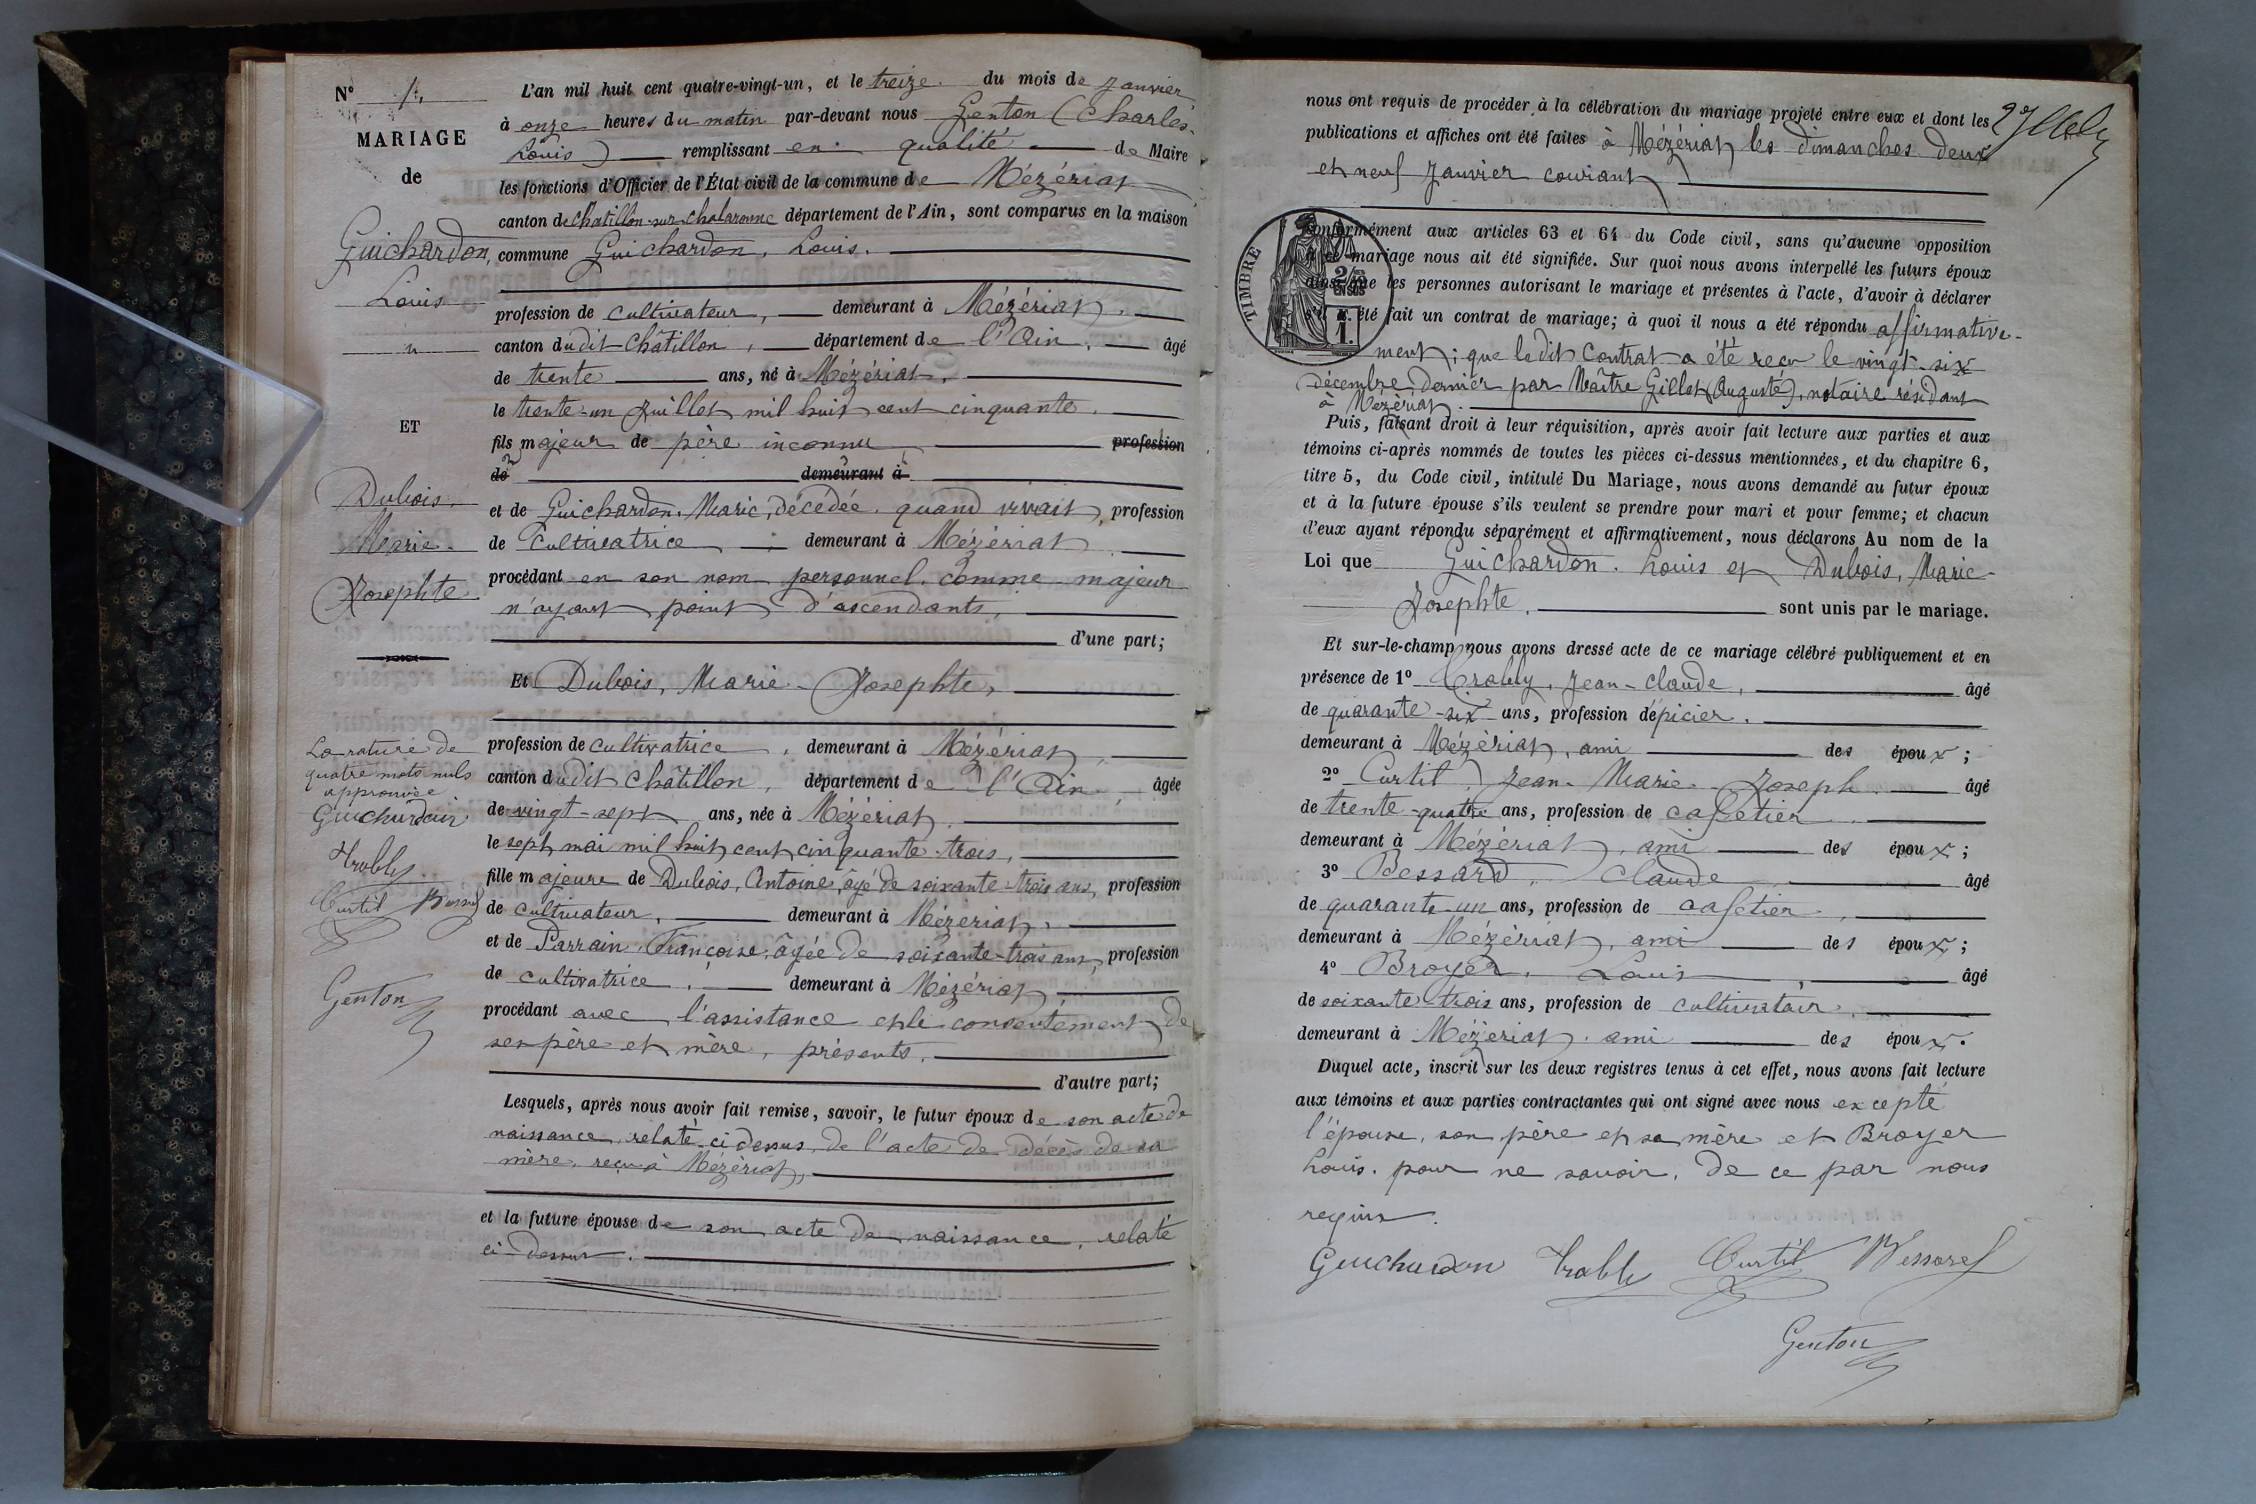 N° 1.
MARIAGE
de
Guichardon,
Louis
ET
Dubois,
Marie-
Josephte
La rature de
quatre mots nuls
approuvée
Guichardon
Trably
Curtil Bessard
Genton
L'an mil huit cent quatre-vingt-un, et le treize du mois de Janvier
à onze heures du matin par-devant nous Genton (Charles-
Louis) remplissant en qualité de Maire
les fonctions d'Officier de l'État civil de la commune de Mézériat
canton de Châtillon-sur-Chalaronne département de l'Ain, sont comparus en la maison
commune Guichardon, Louis.
profession de cultivateur, demeurant à Mézériat,
canton dudit Châtillon, département de l'Ain, âgé
de trente ans, né à Mézériat,
le trente-un Juillet mil huit cent cinquante.
fils majeur de père inconnu profession
de demeurant à
et de Guichardon, Marie, décédée, quand vivait, profession
de cultivatrice demeurant à Mézériat
procédant en son nom personnel, comme majeur
n'ayant point d'ascendants,
d'une part;
Et Dubois, Marie-Josephte,
profession de cultivatrice, demeurant à Mézériat,
canton dudit Châtillon, département de l'Ain, âgée
de vingt-sept ans, née à Mézériat,
le sept mai mil huit cent cinquante-trois,
fille majeure de Dubois, Antoine, âgé de soixante-trois ans, profession
de cultivateur, demeurant à Mézériat,
et de Parrain, Françoise, âgée de soixante-trois ans, profession
de cultivatrice, demeurant à Mézériat,
procédant avec l'assistance et le consentement de
ses père et mère, présents,
d'autre part;
Lesquels, après nous avoir fait remise, savoir, le futur époux de son acte de
naissance, relaté ci-dessus, de l'acte de décès de sa
mère, reçu à Mézériat,
et la future épouse de son acte de naissance, relaté
ci-dessus.
nous ont requis de procéder à la célébration du mariage projeté entre eux et dont les
publications et affiches ont été faites à Mézériat, les dimanches deux
et neuf Janvier courant
TIMBRE
2/10 EN SUS
1.
conformément aux articles 63 et 64 du Code civil, sans qu'aucune opposition
à ce mariage nous ait été signifiée. Sur quoi nous avons interpellé les futurs époux
ainsi que les personnes autorisant le mariage et présentes à l'acte, d'avoir à déclarer
s'il a été fait un contrat de mariage; à quoi il nous a été répondu affirmative-
ment; que ledit Contrat a été reçu le vingt-six
décembre dernier par Maître Gillet (Auguste), notaire résidant
à Mézériat.
Puis, faisant droit à leur réquisition, après avoir fait lecture aux parties et aux
témoins ci-après nommés de toutes les pièces ci-dessus mentionnées, et du chapitre 6,
titre 5, du Code civil, intitulé Du Mariage, nous avons demandé au futur époux
et à la future épouse s'ils veulent se prendre pour mari et pour femme; et chacun
d'eux ayant répondu séparément et affirmativement, nous déclarons Au nom de la
Loi que Guichardon, Louis et Dubois, Marie-
Josephte, sont unis par le mariage.
Et sur-le-champ nous avons dressé acte de ce mariage célébré publiquement et en
présence de 1° Trably, Jean-Claude, âgé
de quarante-six ans, profession d'épicier,
demeurant à Mézériat, ami des époux;
2° Curtil, Jean-Marie-Joseph âgé
de trente-quatre ans, profession de cafetier
demeurant à Mézériat, ami des époux;
3° Bessard, Claude âgé
de quarante-un ans, profession de cafetier,
demeurant à Mézériat, ami des époux;
4° Broyer, Louis, âgé
de soixante-trois ans, profession de cultivateur,
demeurant à Mézériat, ami des époux.
Duquel acte, inscrit sur les deux registres tenus à cet effet, nous avons fait lecture
aux témoins et aux parties contractantes qui ont signé avec nous excepté
l'épouse, son père et sa mère et Broyer
Louis, pour ne savoir, de ce par nous
requis.
Guichardon Trably Curtil Bessard
Genton